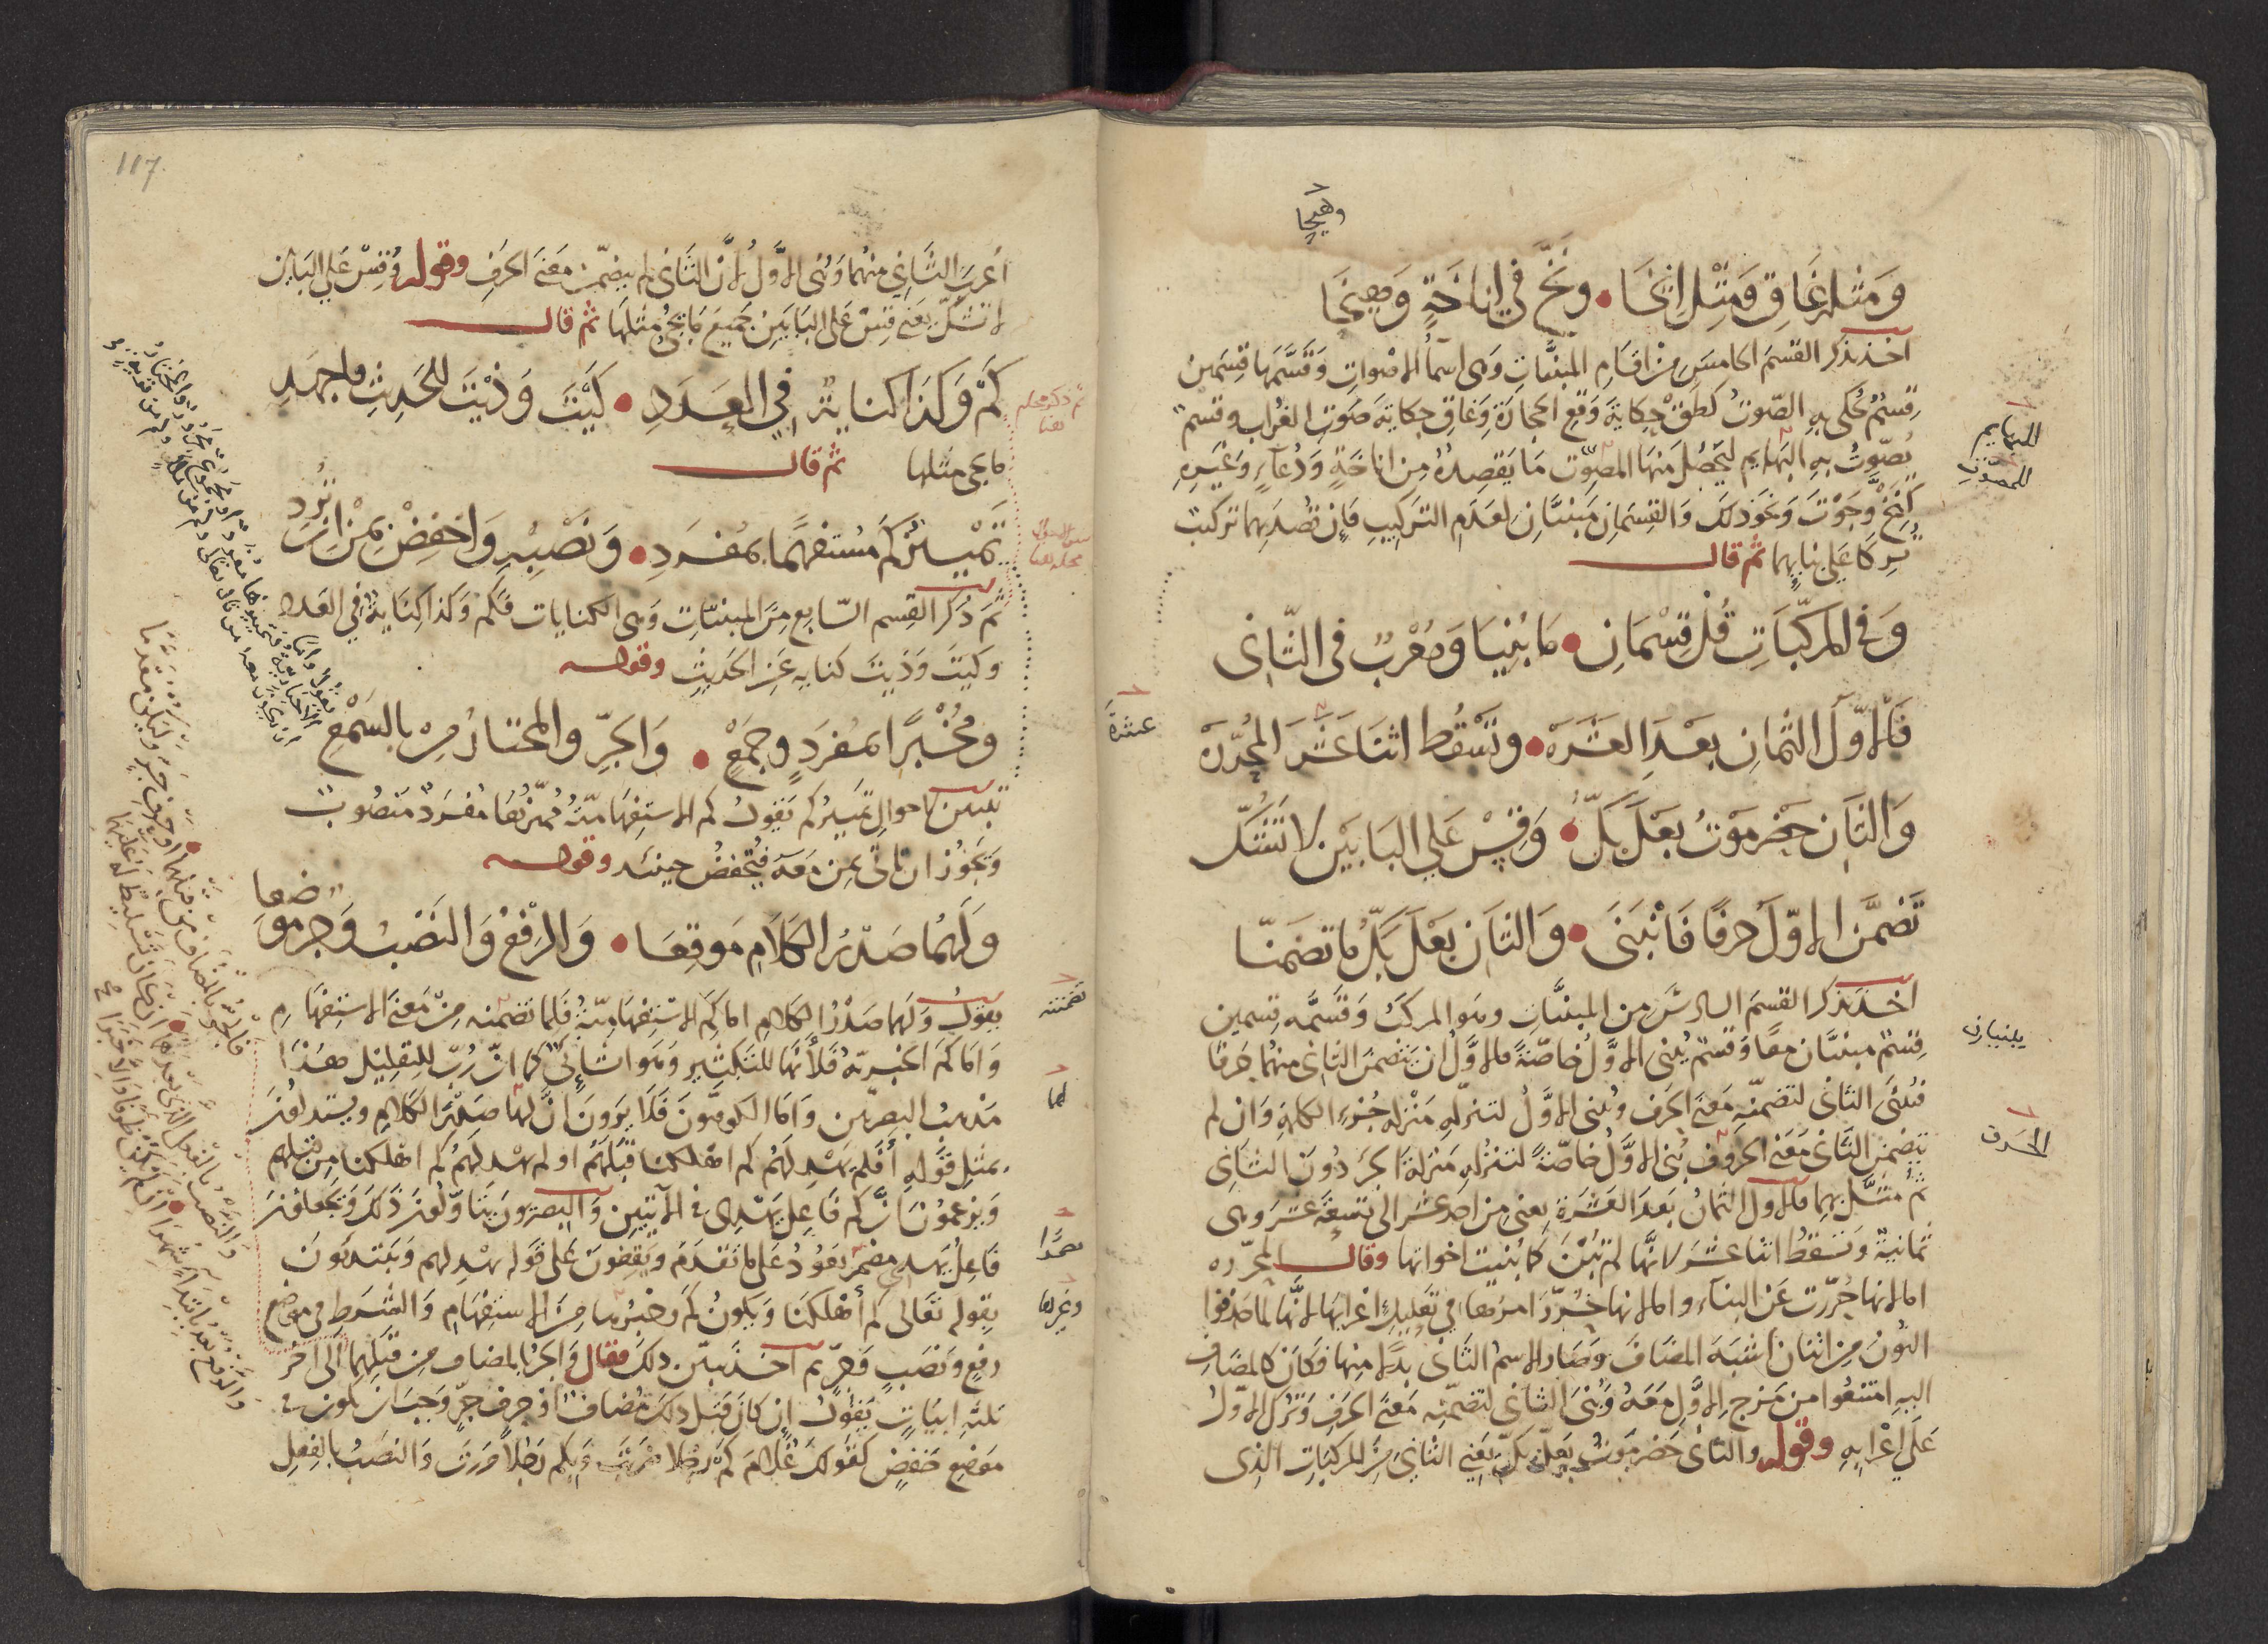 وهيجا
وَمثله غَاقِ وَمِثْل إِنخَا • ونَخَّ في إناخَةٍ وَهِيخَا
اخذ يذكر القسمَ الخامسَ مِنْ اقسَامِ المبنيَّاتِ وهى اسمآُ الاصْواتِ وَقَسَّمَهَا قِسْمَين
قِسْمٌ يُحكى بهِ الصّوتُ كطَقْ حِكايةَ وَقع الحجارَةِ وَغاقِ حِكايةَ صَوتِ الغُراب وقسْم
يُصَوَّتُ بهِ البهايم ليَحْصُلَ منهَا المصَوّت مَا يَقصِدُهُ مِن اناخَةٍ وَدُعَآءٍ وَغَيْرِهِ
البهايم
للمصَوّت
كَنِخْ وَجَوْتَ وَنحَوذلكَ وَالقِسمَانِ مَبنيَّانِ لعَدَم التّركيبِ فَإن قصُدَ بهما تركيبٌ
تُرِكَا عَلى بنايهما ثم قال
وَفى المركّبَاتِ قُلْ قِسْمَانِ • مَا بُنِيَا وَمُعْرَبٌ فى الثّانى
فَالاوّلَ الثمانِ بعْدَ العَشَرَهْ • وتَسْقُط اثنَا عَشَرَ المجُرّدَهْ
عشرةَ
وَالثَانِ حَضرمَوْتُ بعْلَ بَكُّ • وَقِسْ عَلى البَابَيْن لا تَشُكُّ
تَضمَّنَ الاوّلُ حرفًا فَانْبَنَى • وَالثَانِ بَعْلَ بَكُّ مَا تضَمّنَا
اخذ يذكر القسمَ السادسَ من المبنيَّاتِ وهو المركبُ وَقسَّمَه قِسمين
قِسْمٌ مبنيَّان معًا وَقسْمٌ يُبنى الاوَّلُ خاصّةً فالاوَّلُ ان يَتضمنَ الثانِى منهُما حَرفًا
يبنيان
فبُنىَ الثانى لتضمّنه مَعنَى الحَرف وبُنى الاوَّلُ لتنزلّهِ مَنزلة جُزءِ الكلمَةِ وَان لم
يتضمن الثّانى مَعْنَى الحروفِ بُنى الاوَّلُ خاصّةً لتنزُّلهِ مَنزلةَ الجزءِ دُونَ الثانِى
الحرف
ثُم مَثَّل بهمَا فالاول الثمانُ بَعدَ العَشَرَةِ يعنى مِن احَد عشَر الى تسعَةَ عَشر وهى
ثمانية وتسقطُ اثنا عشَر لانَّها لم تُبْنَ كَما بُنيت اخواتها وقال المجرّده
اما لانها جُرّدت عَن البنآءِ واما لانها جُرِّدَ امرُها فى تعَليلِ اعْرابهَا لانَّها لما حَذفوا
النونَ مِن اثنان اشبَهَ المضَافَ وَصَار الاسمُ الثانى بَدَلا منِها فكَانَ كالمضَافِ
اليهِ امتنعُوا من مَزج الاوَّلِ مَعَهُ وَبُنىَ الثانى لتضمّنِه مَعنَى الحَرفِ وَتُرك الاوّلُ
عَلى اعْرابهِ وقوله والثانى حَضرمَوتُ بَعلُ بَكَّ يَعْنِى الثانى مِنَ المركباتِ الذى
117
أُعربَ الثّانِي منهُما وَبُنىَ الاوَّلُ لانّ الثانى لم يتضمّن معَنى الحَرفِ وقوله وَقِسْ عَلى البابَين
لا تشكّ يَعنى قِسْ عَلى البَابَين جَميعَ مَا يجئُ مثلهَا ثم قال
كَمْ وَكَذَا كنايةٌ فى العَدَدِ • كَيْتَ وَذَيْتَ للحَديثِ فاجهَدِ
ثم ذكر محله هنا
ما يجى مثلها ثم قال
تَمْييزُ كَمْ مُسْتفهِمًا بمُفْرَدِ • وَنَصْبِهِ وَاخفِضْ بمِنْ ان تُردِ
ثُمَ ذُكرَ القِسم السّابع مِنَ المبنيّاتِ وَهى الكنايات فكم وَكذا كِنَايةٌ فى العَدد
وكيَتَ وَذَيتَ كنايه عَن الحَديثِ وقوله
ومُخْبِرًا بمُفرَدٍ وجمَعْ • وَالجَرِّ والمختارُ مِنْ بالسَمْعِ
تبيين احوالِ تمييز كم يَقولُ كم الاستِفهَاميّةُ مُميّزُهَا مُفرَدٌ مَنصُوبٌ
وَيجوُز ان تاتىَ بمِن مَعَهُ فيُخفضُ حينئذ وقوله
وَلَهُمَا صَدْرُ الكَلامِ مَوقِعَا • وَالرفْعُ وَالنَصْبُ وَجرٌ موضعا
يقولُ وَلهما صَدْرُ الكلامِ اما كَمْ الاسْتِفهَاميّةُ فلِما تضمنه مِنْ مَعنَى الاستِفهَام
تضمنته
وَاما كم الخبريّةُ فلأنَّها للتكثيرِ وَهوَ انشآئىٌّ كما انّ رُبّ للتقليل هَذَا
مَذهبُ البَصريّين وَاما الكوفيّونَ فَلا يَرَوْنَ انَّ لها صَدْرَ الكَلامِ ويستدلونَ
لهما
بمثل قَوله أفلم يَهْدِ لَهُم كم اهْلكنا قبْلَهُم اولم يهْدِ لهُم كم اهْلكنا مِن قبلهم
وَيزعمُونَ انَّ كم فَاعِل يَهْدِى فى الآيتيَن وَالبصريّون يتَاوّلونَ ذَلكَ وَيجعَلونَ
فَاعِلُ يَهدى مضمَرًا يَعُودُ عَلى ما تقدَمَ وَيقفونَ عَلى قوله يَهْدِ لهم وَيَبْتدئونَ
مضمَرًا
بقوله تعَالى كم أهْلكنَا وَيكونُ كَم وغيرُها مِنَ الاستِفهَامِ وَالشَرطِ فى مَوضِع
وغيرهما
رفعٍ وَنصَبٍ وَجَرٍّ ثم اخذ يبيّن ذلكَ فقال وَالجَرُّ بالمضاف مِن قبْلِهمَا الى اخرِ
ثلثهِ ابيَاتٍ يَقوُلُ ان كانَ قبْل ذلك مُضافٌ اوْ حرف جرٍّ وَجبَ ان يكون فى
مَوضِع خَفضٍ كقَولكَ غُلامَ كَمْ رَجُلا ضربْتَ وبِكم رَجُلاً مَررتَ وَالنصَبُ بالفِعِلِ
فالجرُّ بالمضاف من قبلهما اوحَرفِ جرٍّ
والنصْبُ بالفعل الذى بعدهَا ان كان تسْليط له عَليهما
والرفع بعدُ بابتدآءٍ